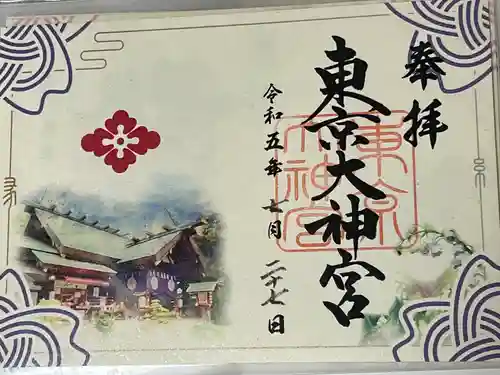 奉拝
東京大神宮
東京
大神宮
令和五年 七月 二十七日